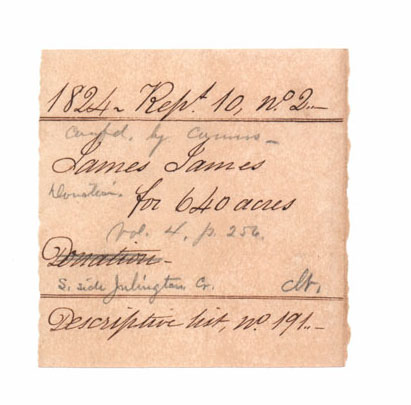 1824 Rept. 10, no. 2.
Conf'd. by Comms
James James
Donation.
for 640 acres
Vol. 4, p. 256.
Donation
S. side Julington Cr.
Descriptive list, no. 191.